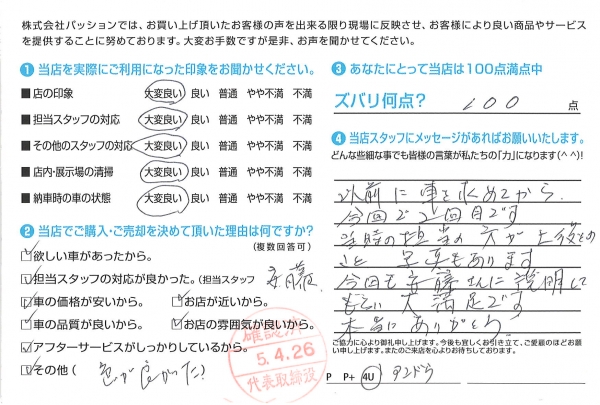 株式会社パッションでは、お買い上げ頂いたお客様の声を出来る限り現場に反映させ、お客様により良い商品やサービス
を提供することに努めております。大変お手数ですが是非、お声を聞かせてください。
① 当店を実際にご利用になった印象をお聞かせください。
■店の印象 大変良い 良い 普通 やや不満 不満
■担当スタッフの対応 大変良い 良い 普通 やや不満 不満
■その他のスタッフの対応 大変良い 良い 普通 やや不満 不満
■店内・展示場の清掃 大変良い 良い 普通 やや不満 不満
■納車時の車の状態 大変良い 良い 普通 やや不満 不満
② 当店でご購入・ご売却を決めて頂いた理由は何ですか?
(複数回答可)
欲しい車があったから。
担当スタッフの対応が良かった。(担当スタッフ 安藤
車の価格が安いから。 お店が近いから。
車の品質が良いから。 お店の雰囲気が良いから。
アフターサービスがしっかりしているから。
その他( 色が良かった!
確認済
5.4.26
代表取締役
③ あなたにとって当店は100点満点中
ズバリ何点? 100 点
④ 当店スタッフにメッセージがあればお願いいたします。
どんな些細な事でも皆様の言葉が私たちの「力」になります(^^)!
以前に車を求めてから、
今回で2回目です
当時の担当の方が
もあります
今回も安藤さんに説明して
もらい大満足です
本当にありがとう
ご協力に心より御礼申し上げます。今後も宜しくお引き立て、ご愛顧のほどお願
い申し上げます。またのご来店を心よりお待ちしております。
P P+ 4U アンドウ